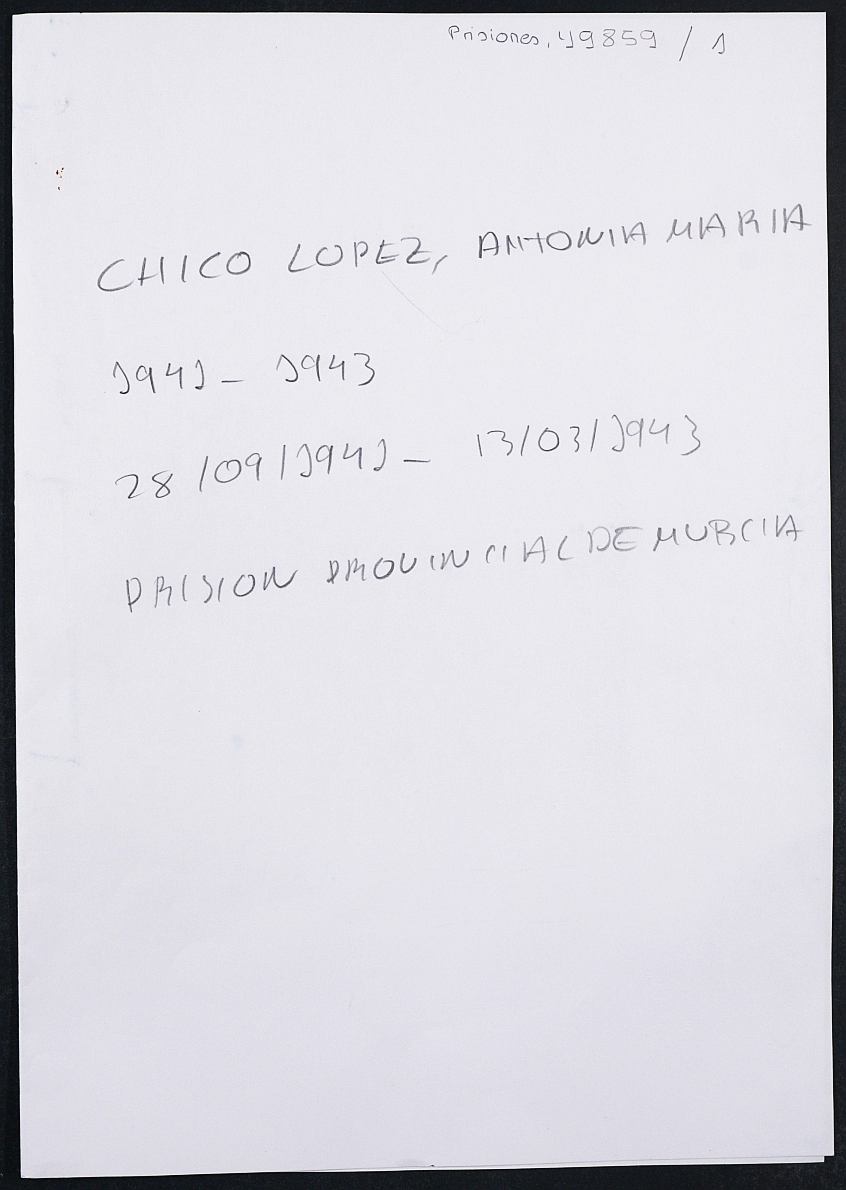 Prisiones, 49859 / 1
CHICO LOPEZ, ANTONIA MARIA
1941 - 1943
28/09/1941 - 13/03/1943
PRISION PROVINCIAL DE MURCIA